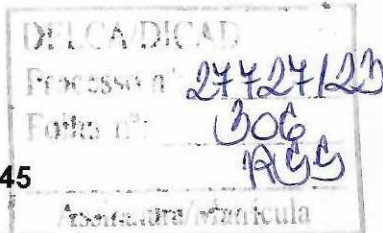 DELCA/DICAD
Processo nº 27727/23
Folha nº: 306
RGS
45
Assinatura/Matrícula